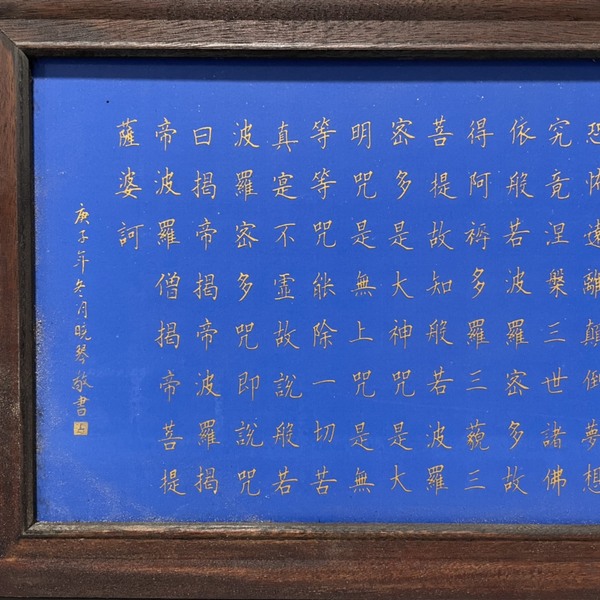 恐怖遠離顛倒夢想
究竟涅槃三世諸佛
依般若波羅密多故
得阿耨多羅三藐三
菩提故知般若波羅
密多是大神咒是大
明咒是無上咒是無
等等咒能除一切苦
真寔不虛故說般若
波羅密多咒即說咒
曰揭帝揭帝波羅揭
帝波羅僧揭帝菩提
薩婆訶
庚子年冬月晓琴敬書